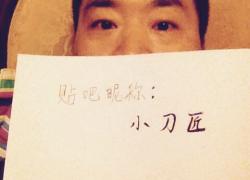 贴吧昵称：
小刀匠